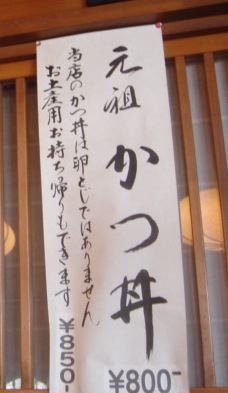 元祖 かつ丼 ¥800-
当店のかつ丼は卵とじではありません
お土産用お持ち帰りもできます ¥850-